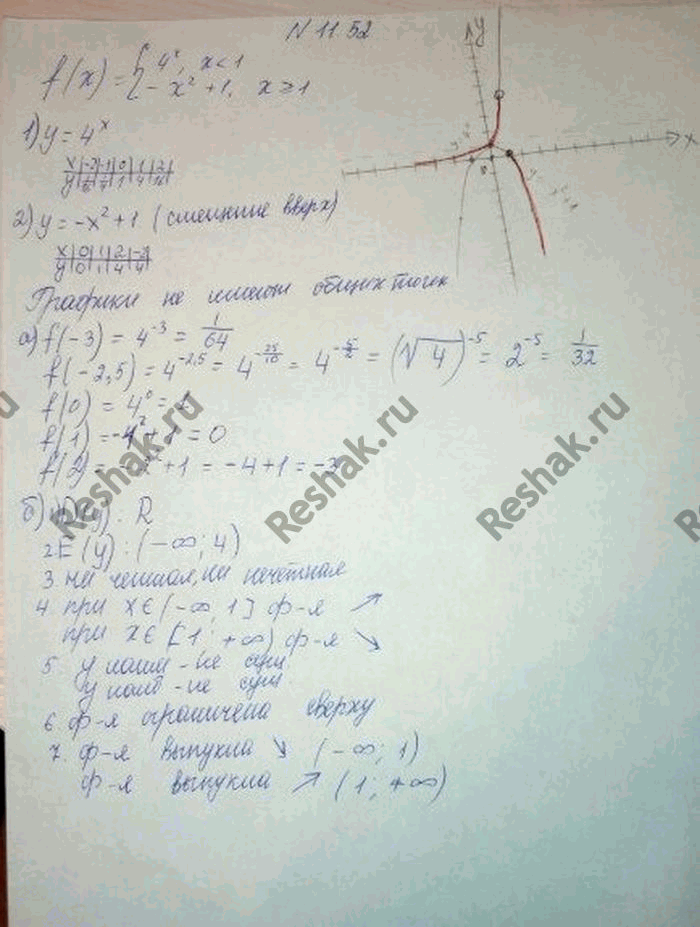 N 11.52
f(x) = { 4^x, x < 1
-x² + 1, x ≥ 1
y
x
0
1) y = 4^x
x | -2 | -1 | 0 | 1 | 2
y | 1/16 | 1/4 | 1 | 4 | 16
2) y = -x² + 1 (смещение вверх)
x | 0 | 1 | 2 | -2
y | 0 | 1 | 4 | 4
Графики не имеют общих точек
а) f(-3) = 4^-3 = 1/64
f(-2,5) = 4^-2,5 = 4^-25/10 = 4^-5/2 = (√4)^-5 = 2^-5 = 1/32
f(0) = 4^0 = 1
f(1) = -1² + 1 = 0
f(2) = -2² + 1 = -4 + 1 = -3
б) 1 D(y): R
2 E(y): (-∞; 4)
3 ни четная, ни нечетная
4 при x ∈ (-∞, 1] ф-я ↗
при x ∈ [1; +∞) ф-я ↘
5. y наим - не сущ
y наиб - не сущ
6. ф-я ограничена сверху
7. ф-я выпукла ↘ (-∞; 1)
ф-я выпукла ↗ (1; +∞)
Reshak.ru
Reshak.ru
Reshak.ru
Reshak.ru